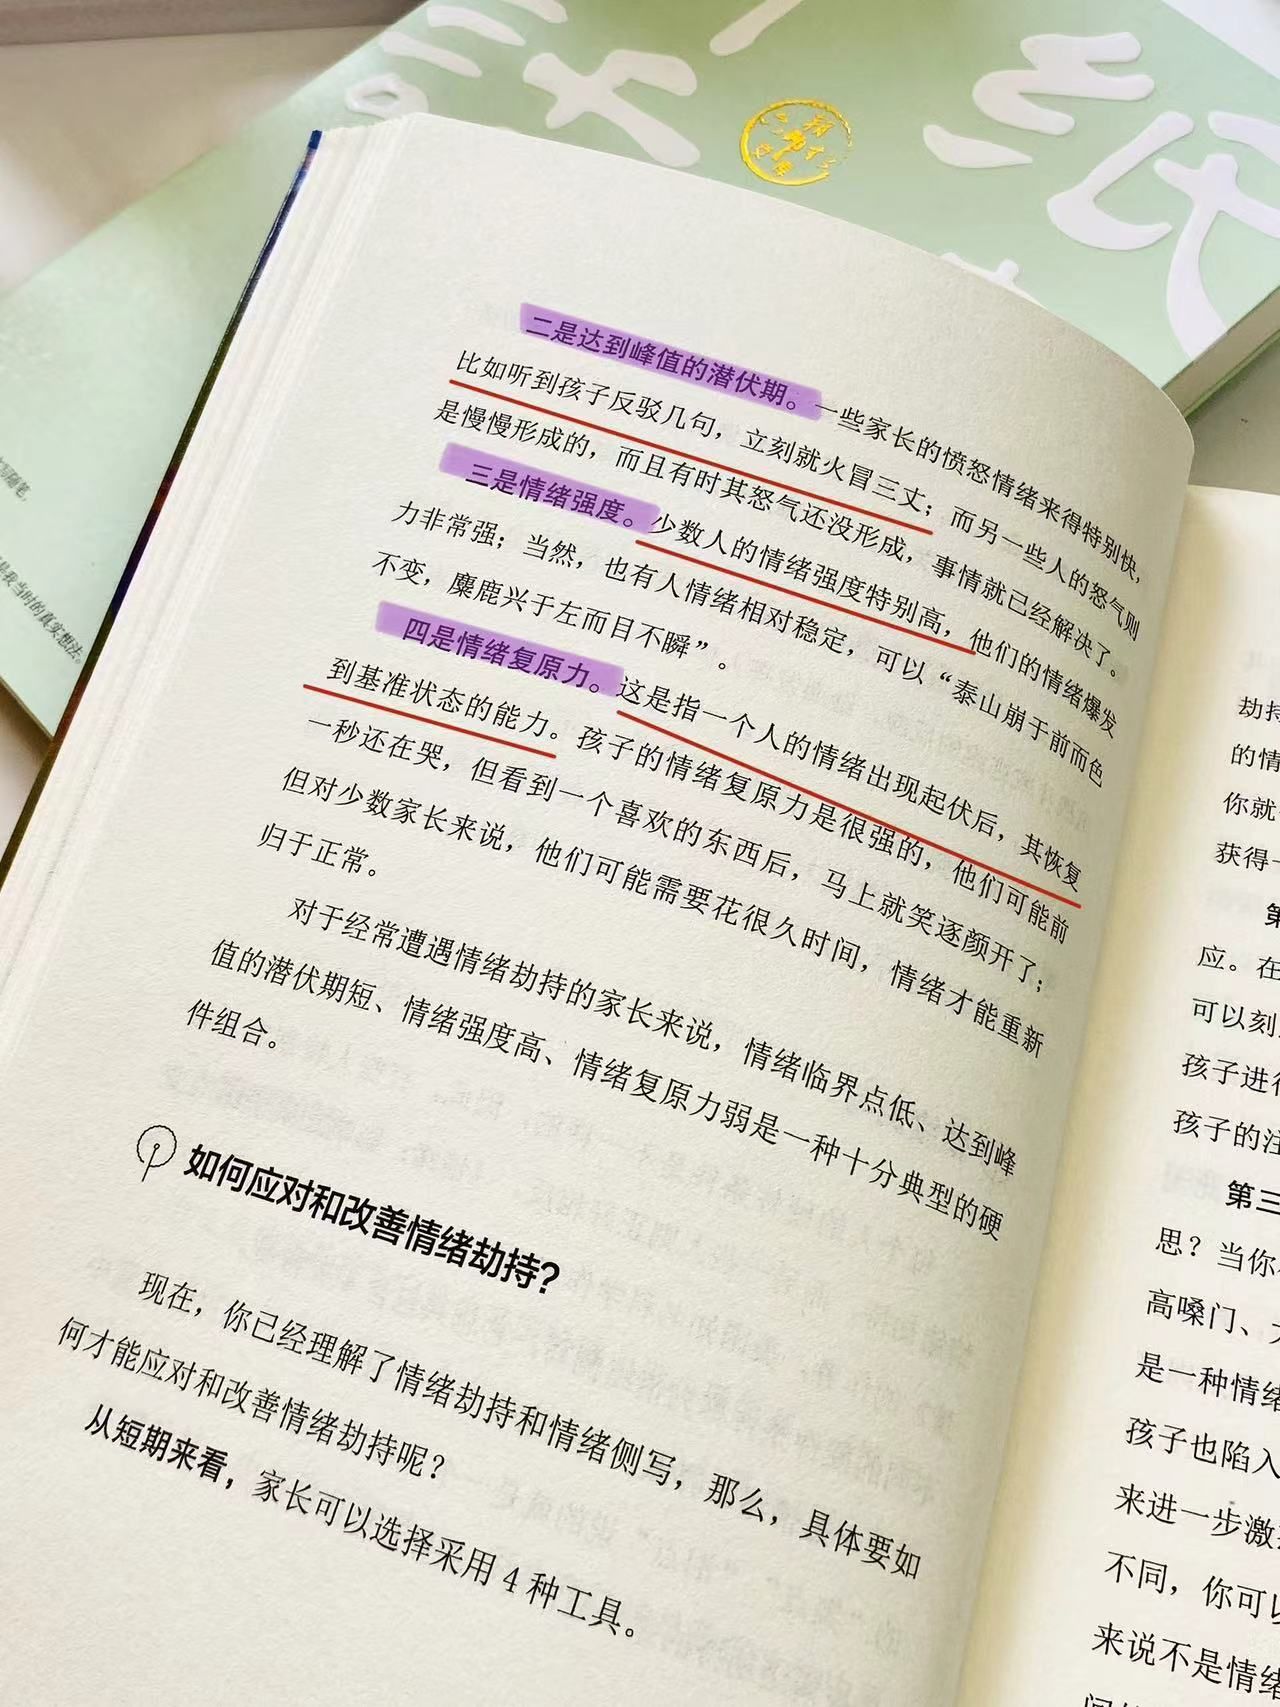 纸
写随笔
是我当时的真实想法。
二是达到峰值的潜伏期。一些家长的愤怒情绪来得特别快，
比如听到孩子反驳几句，立刻就火冒三丈；而另一些人的怒气则
是慢慢形成的，而且有时其怒气还没形成，事情就已经解决了。
三是情绪强度。少数人的情绪强度特别高，他们的情绪爆发
力非常强；当然，也有人情绪相对稳定，可以“泰山崩于前而色
不变，麋鹿兴于左而目不瞬”。
四是情绪复原力。这是指一个人的情绪出现起伏后，其恢复
到基准状态的能力。孩子的情绪复原力是很强的，他们可能前
一秒还在哭，但看到一个喜欢的东西后，马上就笑逐颜开了；
但对少数家长来说，他们可能需要花很久时间，情绪才能重新
归于正常。
对于经常遭遇情绪劫持的家长来说，情绪临界点低、达到峰
值的潜伏期短、情绪强度高、情绪复原力弱是一种十分典型的硬
件组合。
如何应对和改善情绪劫持？
现在，你已经理解了情绪劫持和情绪侧写，那么，具体要如
何才能应对和改善情绪劫持呢？
从短期来看，家长可以选择采用 4 种工具。
劫持
的情
你就
获得
第
应。在
可以刻
孩子进行
孩子的注
第三
思？当你
高嗓门、
是一种情绪
孩子也陷入
来进一步激
不同，你可以
来说不是情绪